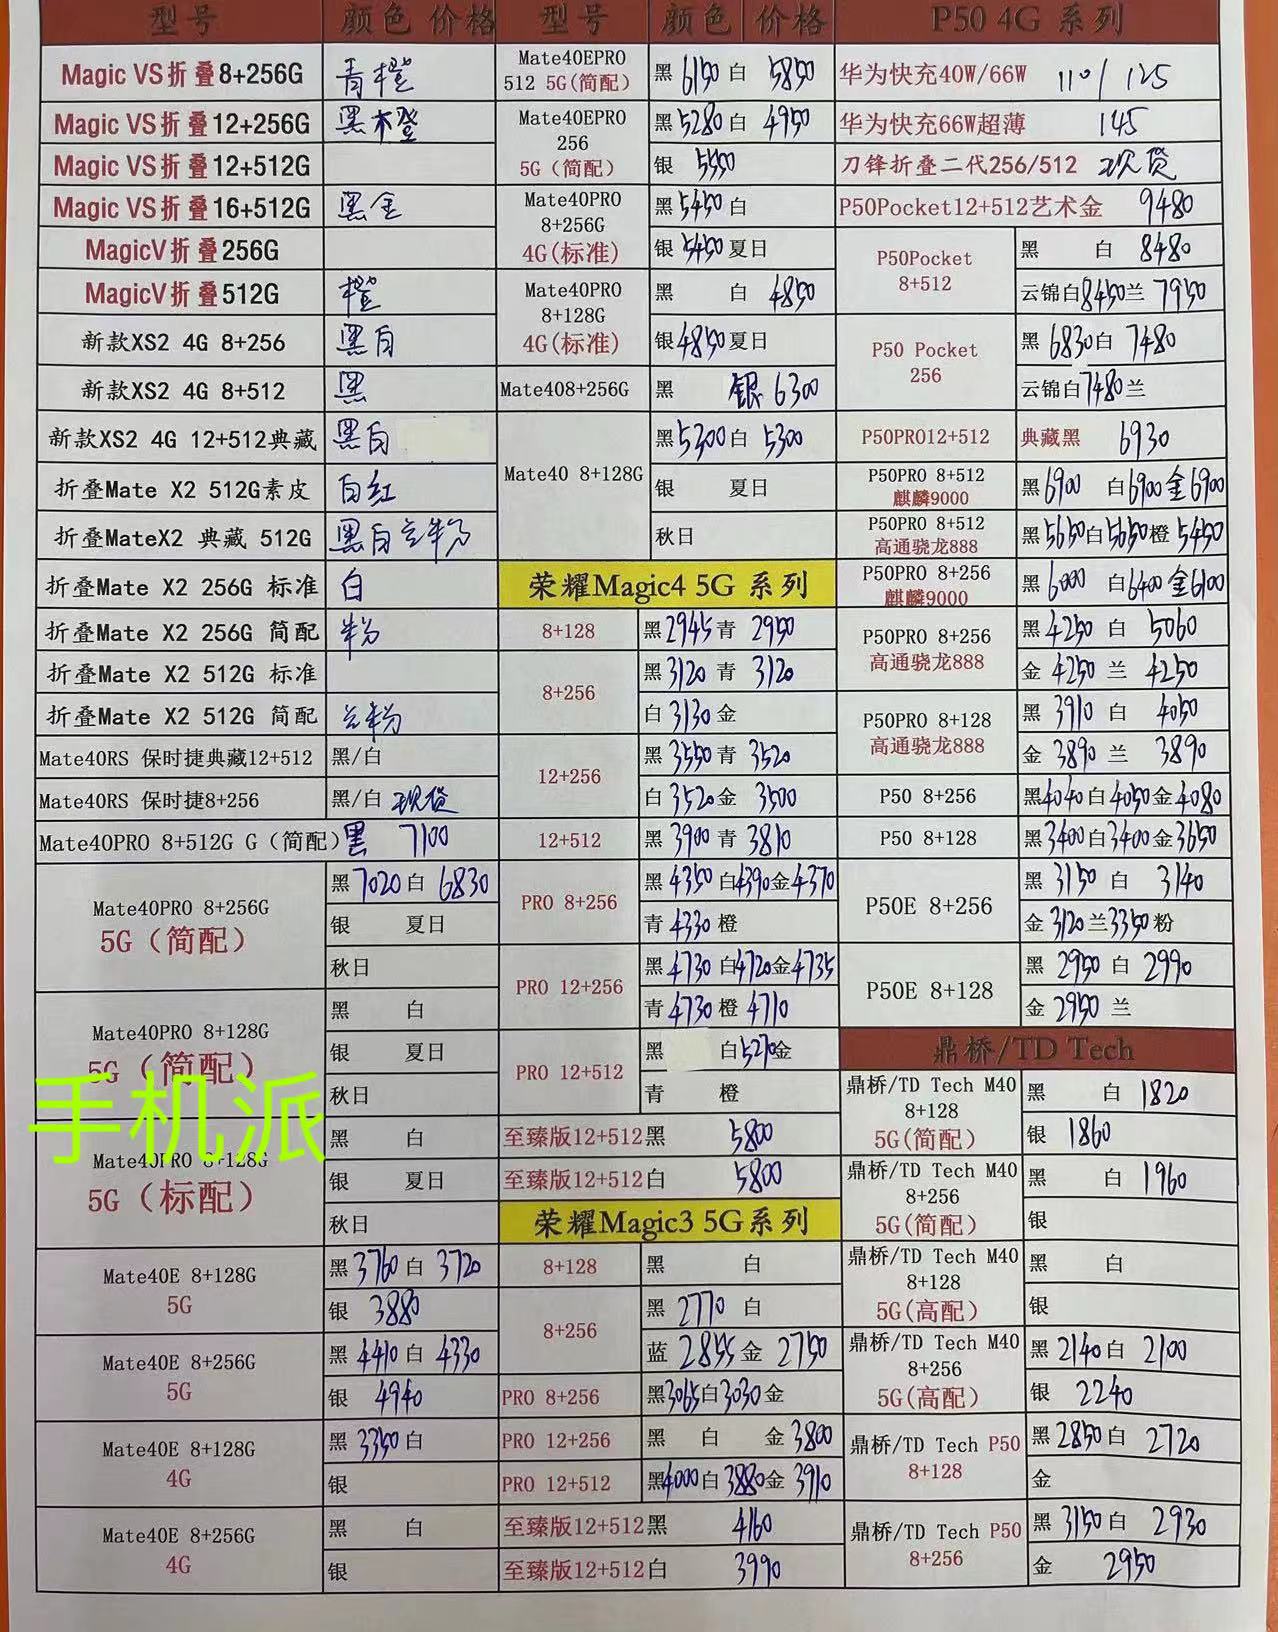 型号 颜色 价格
Magic VS折叠8+256G 青橙
Magic VS折叠12+256G 黑橙
Magic VS折叠12+512G
Magic VS折叠16+512G 黑金
MagicV折叠256G
MagicV折叠512G 橙
新款XS2 4G 8+256 黑白
新款XS2 4G 8+512 黑
新款XS2 4G 12+512典藏 黑白
折叠Mate X2 512G素皮 白红
折叠MateX2 典藏 512G 黑白兰粉
折叠Mate X2 256G 标准 白
折叠Mate X2 256G 简配 粉
折叠Mate X2 512G 标准
折叠Mate X2 512G 简配 兰粉
Mate40RS 保时捷典藏12+512 黑/白
Mate40RS 保时捷8+256 黑/白 现货
Mate40PRO 8+512G G（简配） 黑 7100
Mate40PRO 8+256G
5G（简配）
黑 7020 白 6830
银 夏日
秋日
Mate40PRO 8+128G
5G（简配）
黑 白
银 夏日
秋日
手机派
Mate40PRO 8+128G
5G（标配）
黑 白
银 夏日
秋日
Mate40E 8+128G
5G
黑 3760 白 3720
银 3880
Mate40E 8+256G
5G
黑 4410 白 4330
银 4940
Mate40E 8+128G
4G
黑 3350 白
银
Mate40E 8+256G
4G
黑 白
银
型号 颜色 价格
Mate40EPRO
512 5G(简配)
黑 6150 白 5850
Mate40EPRO
256
5G（简配）
黑 5280 白 4950
银 5550
Mate40PRO
8+256G
4G(标准)
黑 5450 白
银 5450 夏日
Mate40PRO
8+128G
4G(标准)
黑 白 4850
银 4850 夏日
Mate408+256G 黑 银 6300
Mate40 8+128G
黑 5300 白 5300
银 夏日
秋日
荣耀Magic4 5G 系列
8+128 黑 2945 青 2950
8+256
黑 3120 青 3120
白 3130 金
12+256
黑 3550 青 3520
白 3520 金 3500
12+512 黑 3900 青 3810
PRO 8+256
黑 4350 白 4390 金 4370
青 4330 橙
PRO 12+256
黑 4730 白 4720 金 4735
青 4730 橙 4710
PRO 12+512
黑 白 5270 金
青 橙
至臻版12+512黑 5800
至臻版12+512白 5800
荣耀Magic3 5G系列
8+128 黑 白
8+256
黑 2770 白
蓝 2855 金 2750
PRO 8+256 黑 3065 白 3030 金
PRO 12+256 黑 白 金 3800
PRO 12+512 黑 4000 白 3880 金 3910
至臻版12+512黑 4160
至臻版12+512白 3990
P50 4G 系列
华为快充40W/66W 110/125
华为快充66W超薄 145
刀锋折叠二代256/512 现货
P50Pocket12+512艺术金 9480
P50Pocket
8+512
黑 白 8480
云锦白 8450 兰 7950
P50 Pocket
256
黑 6830 白 7480
云锦白 7480 兰
P50PRO12+512 典藏黑 6930
P50PRO 8+512
麒麟9000
黑 6900 白 6900 金 6900
P50PRO 8+512
高通骁龙888
黑 5650 白 5650 橙 5450
P50PRO 8+256
麒麟9000
黑 6000 白 6400 金 6100
P50PRO 8+256
高通骁龙888
黑 4250 白 5060
金 4250 兰 4250
P50PRO 8+128
高通骁龙888
黑 3910 白 4050
金 3890 兰 3890
P50 8+256 黑 4040 白 4050 金 4080
P50 8+128 黑 3400 白 3400 金 3650
P50E 8+256
黑 3150 白 3140
金 3120 兰 3350 粉
P50E 8+128
黑 2950 白 2990
金 2950 兰
鼎桥/TD Tech
鼎桥/TD Tech M40
8+128
5G(简配)
黑 白 1820
银 1860
鼎桥/TD Tech M40
8+256
5G(简配)
黑 白 1960
银
鼎桥/TD Tech M40
8+128
5G(高配)
黑 白
银
鼎桥/TD Tech M40
8+256
5G(高配)
黑 2140 白 2100
银 2240
鼎桥/TD Tech P50
8+128
黑 2850 白 2720
金
鼎桥/TD Tech P50
8+256
黑 3150 白 2930
金 2950